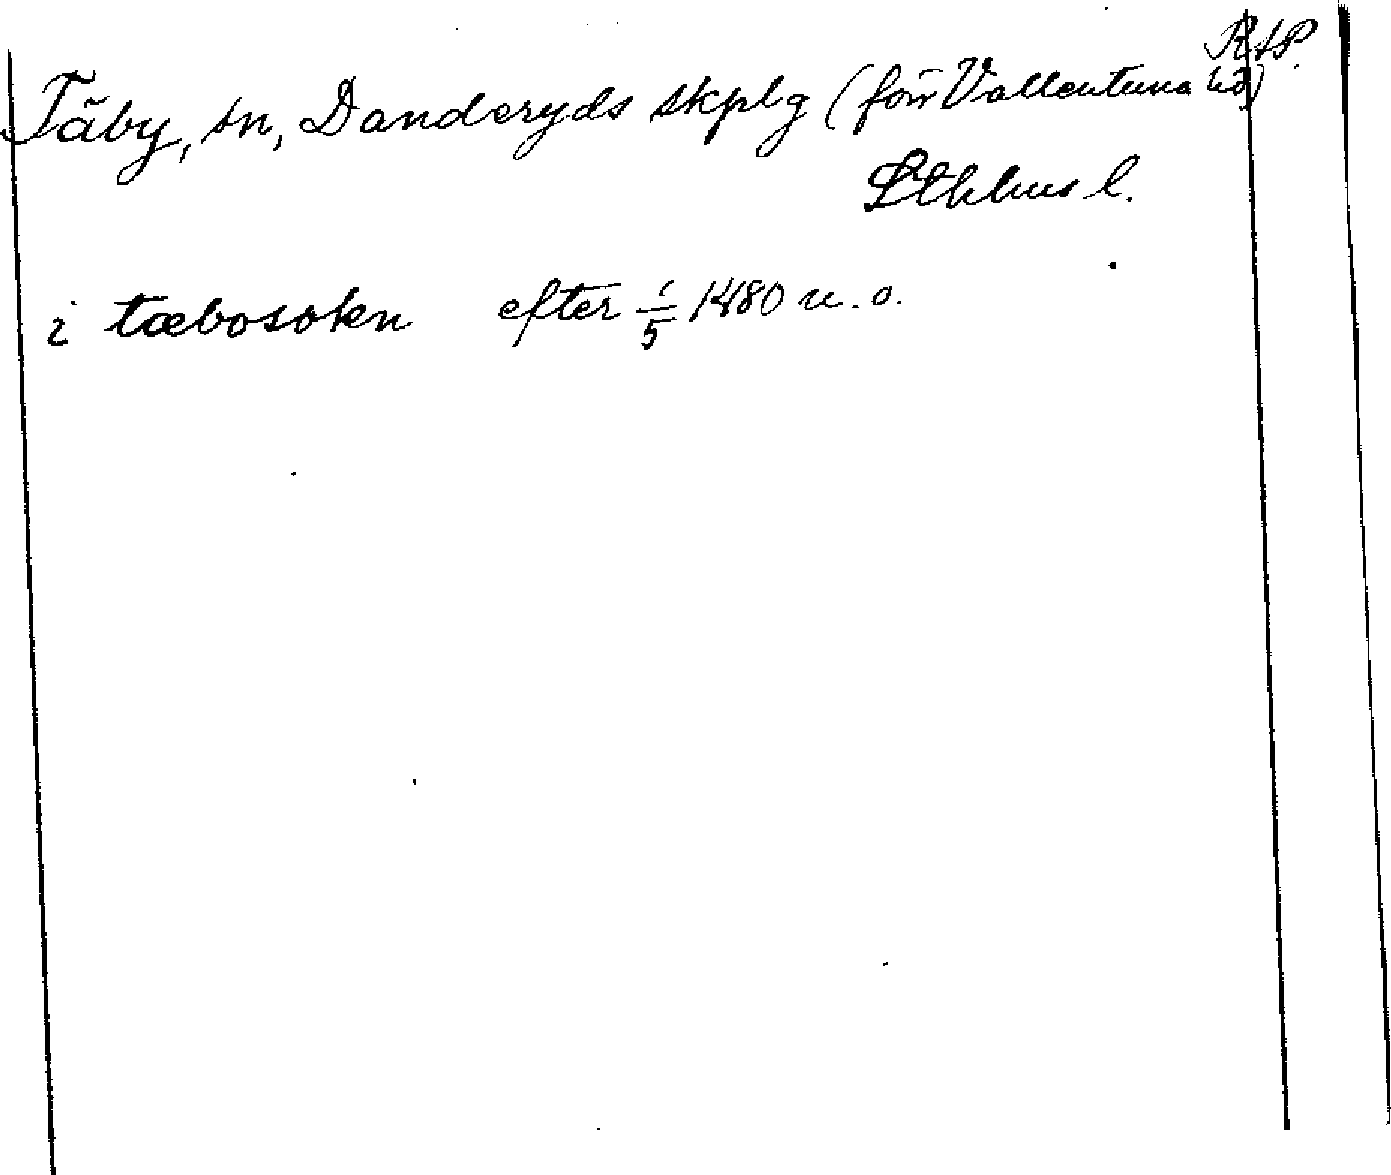 RAP.
Täby, sn, Danderyds skplg (förr Vallentuna hd)
Sthlms l.
i tæbosokn efter 1/5 1480 u. o.